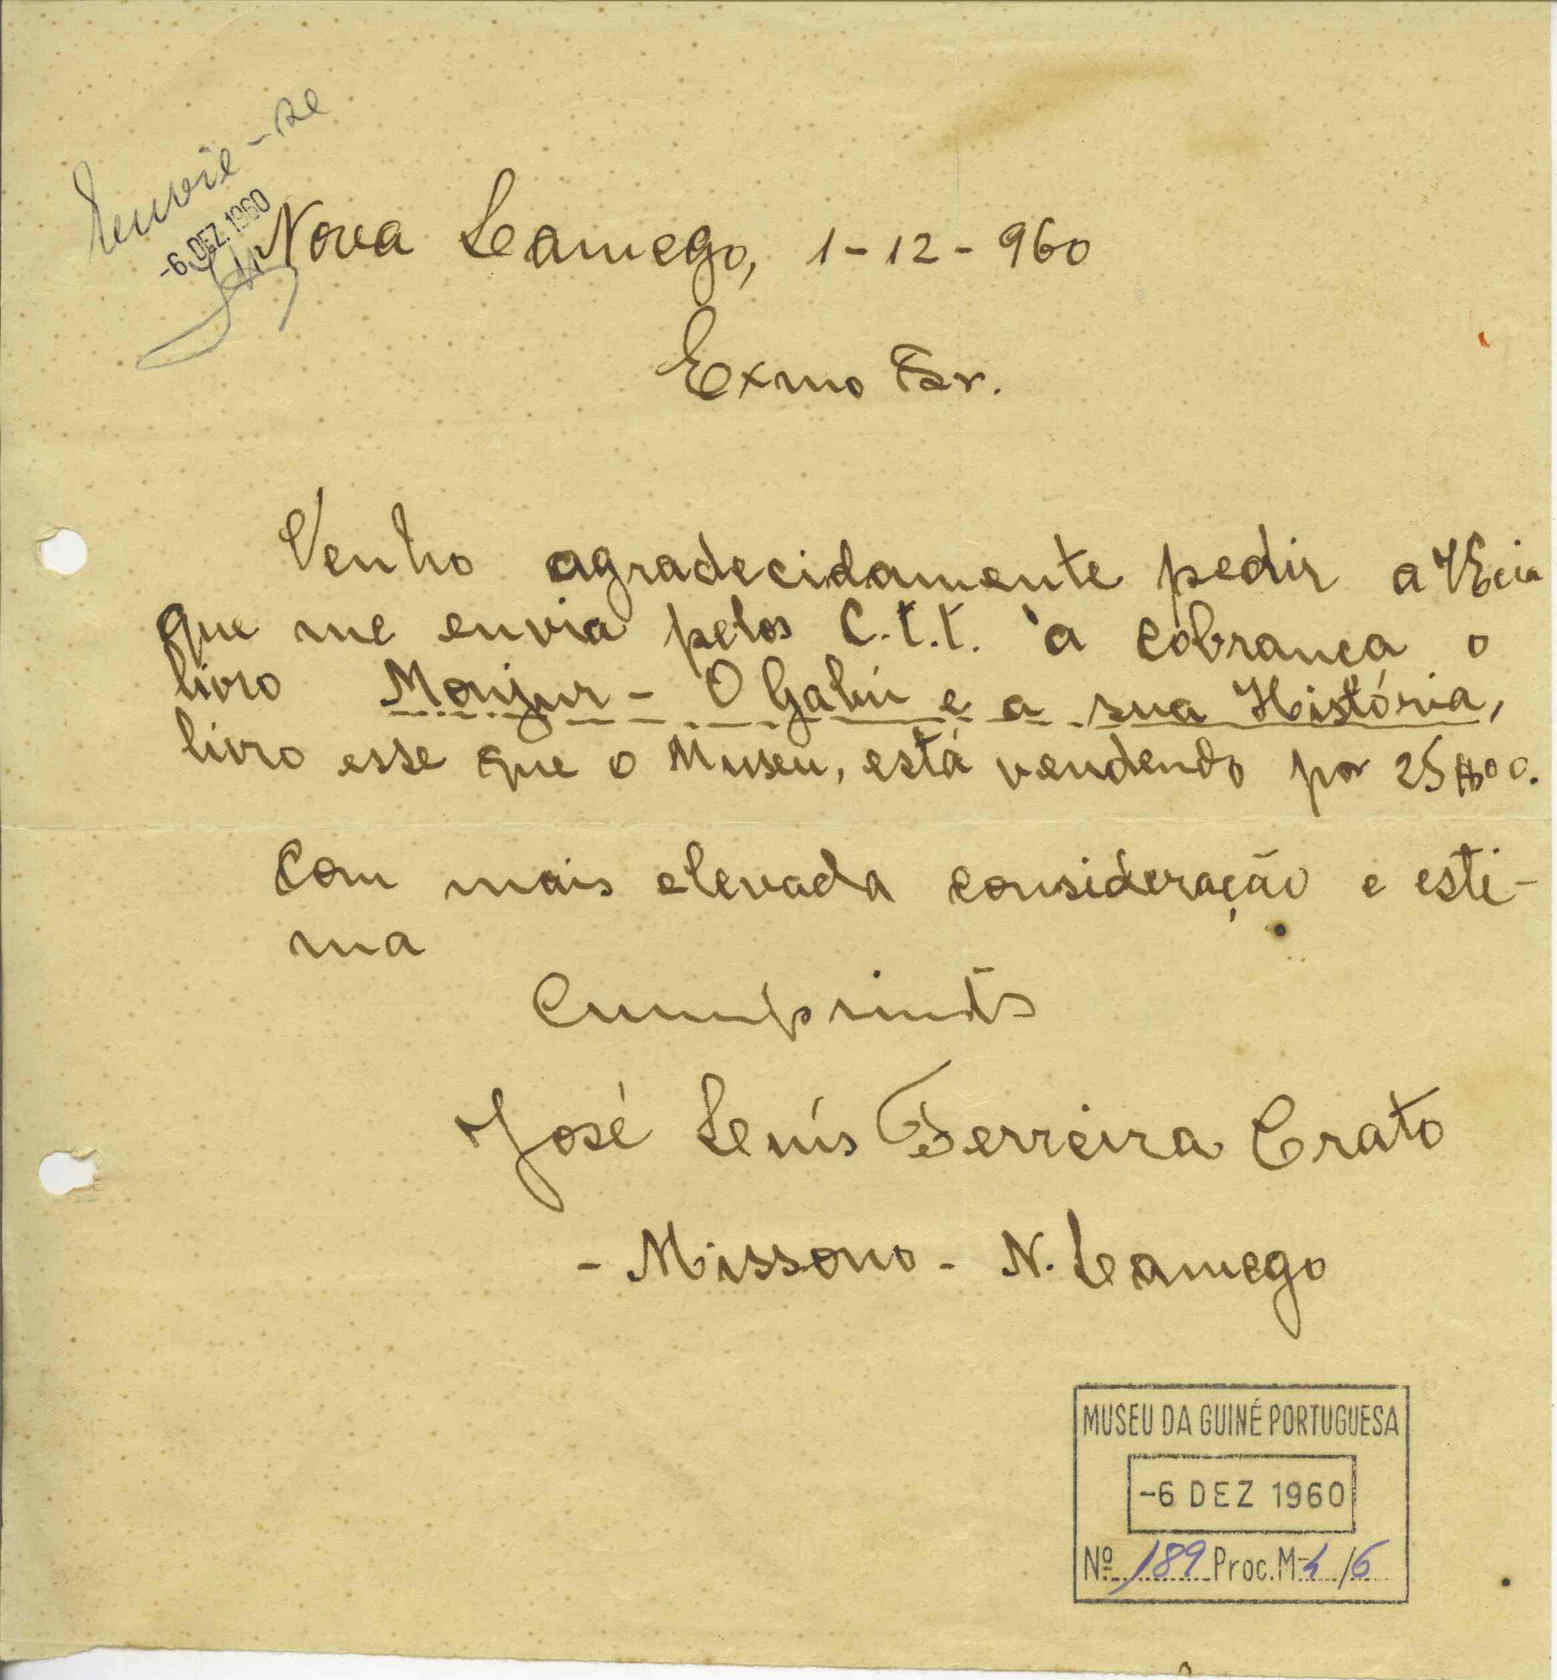 Envie-se
-6 DEZ 1960
Nova Lamego, 1-12-960
Exmo Sr.
Venho agradecidamente pedir a VExcia
que me envia pelos C.T.T. à cobrança o
livro Monjur - O Gabú e a sua História,
livro esse que o Museu, está vendendo por 25$00.
Com mais elevada consideração e esti-
ma
Cumprimts
José Luís Ferreira Crato
- Missono - N. Lamego
MUSEU DA GUINÉ PORTUGUESA
-6 DEZ 1960
Nº 189 Proc. M-4/6